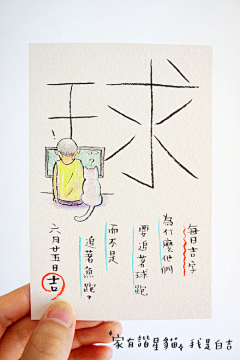 球
每日吉字
為什麼他們
要追著球跑
而不是
追著魚跑?
六月廿五日 吉
家有諧星貓 我是白吉